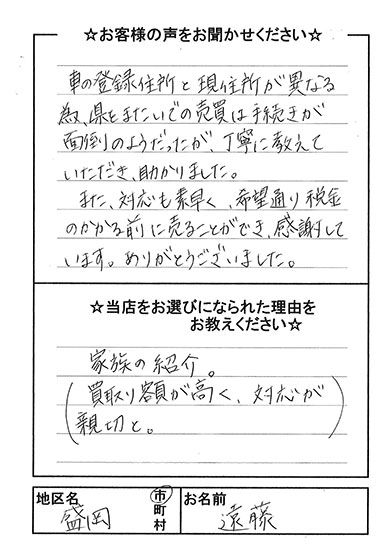 ☆お客様の声をお聞かせください☆
車の登録住所と現住所が異なる
為、県をまたいでの売買は手続きが
面倒のようだったが、丁寧に教えて
いただき、助かりました。
また、対応も素早く、希望通り税金
のかかる前に売ることができ、感謝して
います。ありがとうございました。
☆当店をお選びになられた理由を
お教えください☆
家族の紹介。
(買取り額が高く、対応が
親切と。)
地区名
盛岡
市
町
村
お名前
遠藤